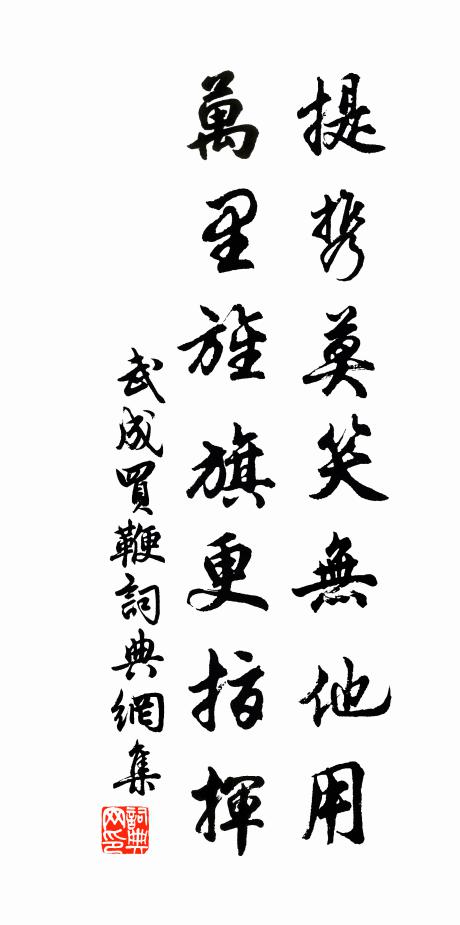 提携莫笑無他用
萬里旌旗更指揮
武成買鞭詞典網集
詞典网印